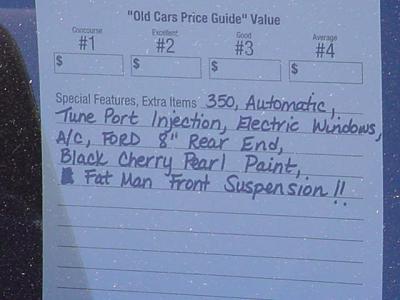 "Old Cars Price Guide" Value
Concourse Excellent Good Average
#1 #2 #3 #4
$ $ $ $
Special Features, Extra Items 350, Automatic,
Tune Port Injection, Electric Windows,
A/C, FORD 8" Rear End,
Black Cherry Pearl Paint,
Fat Man Front Suspension!!